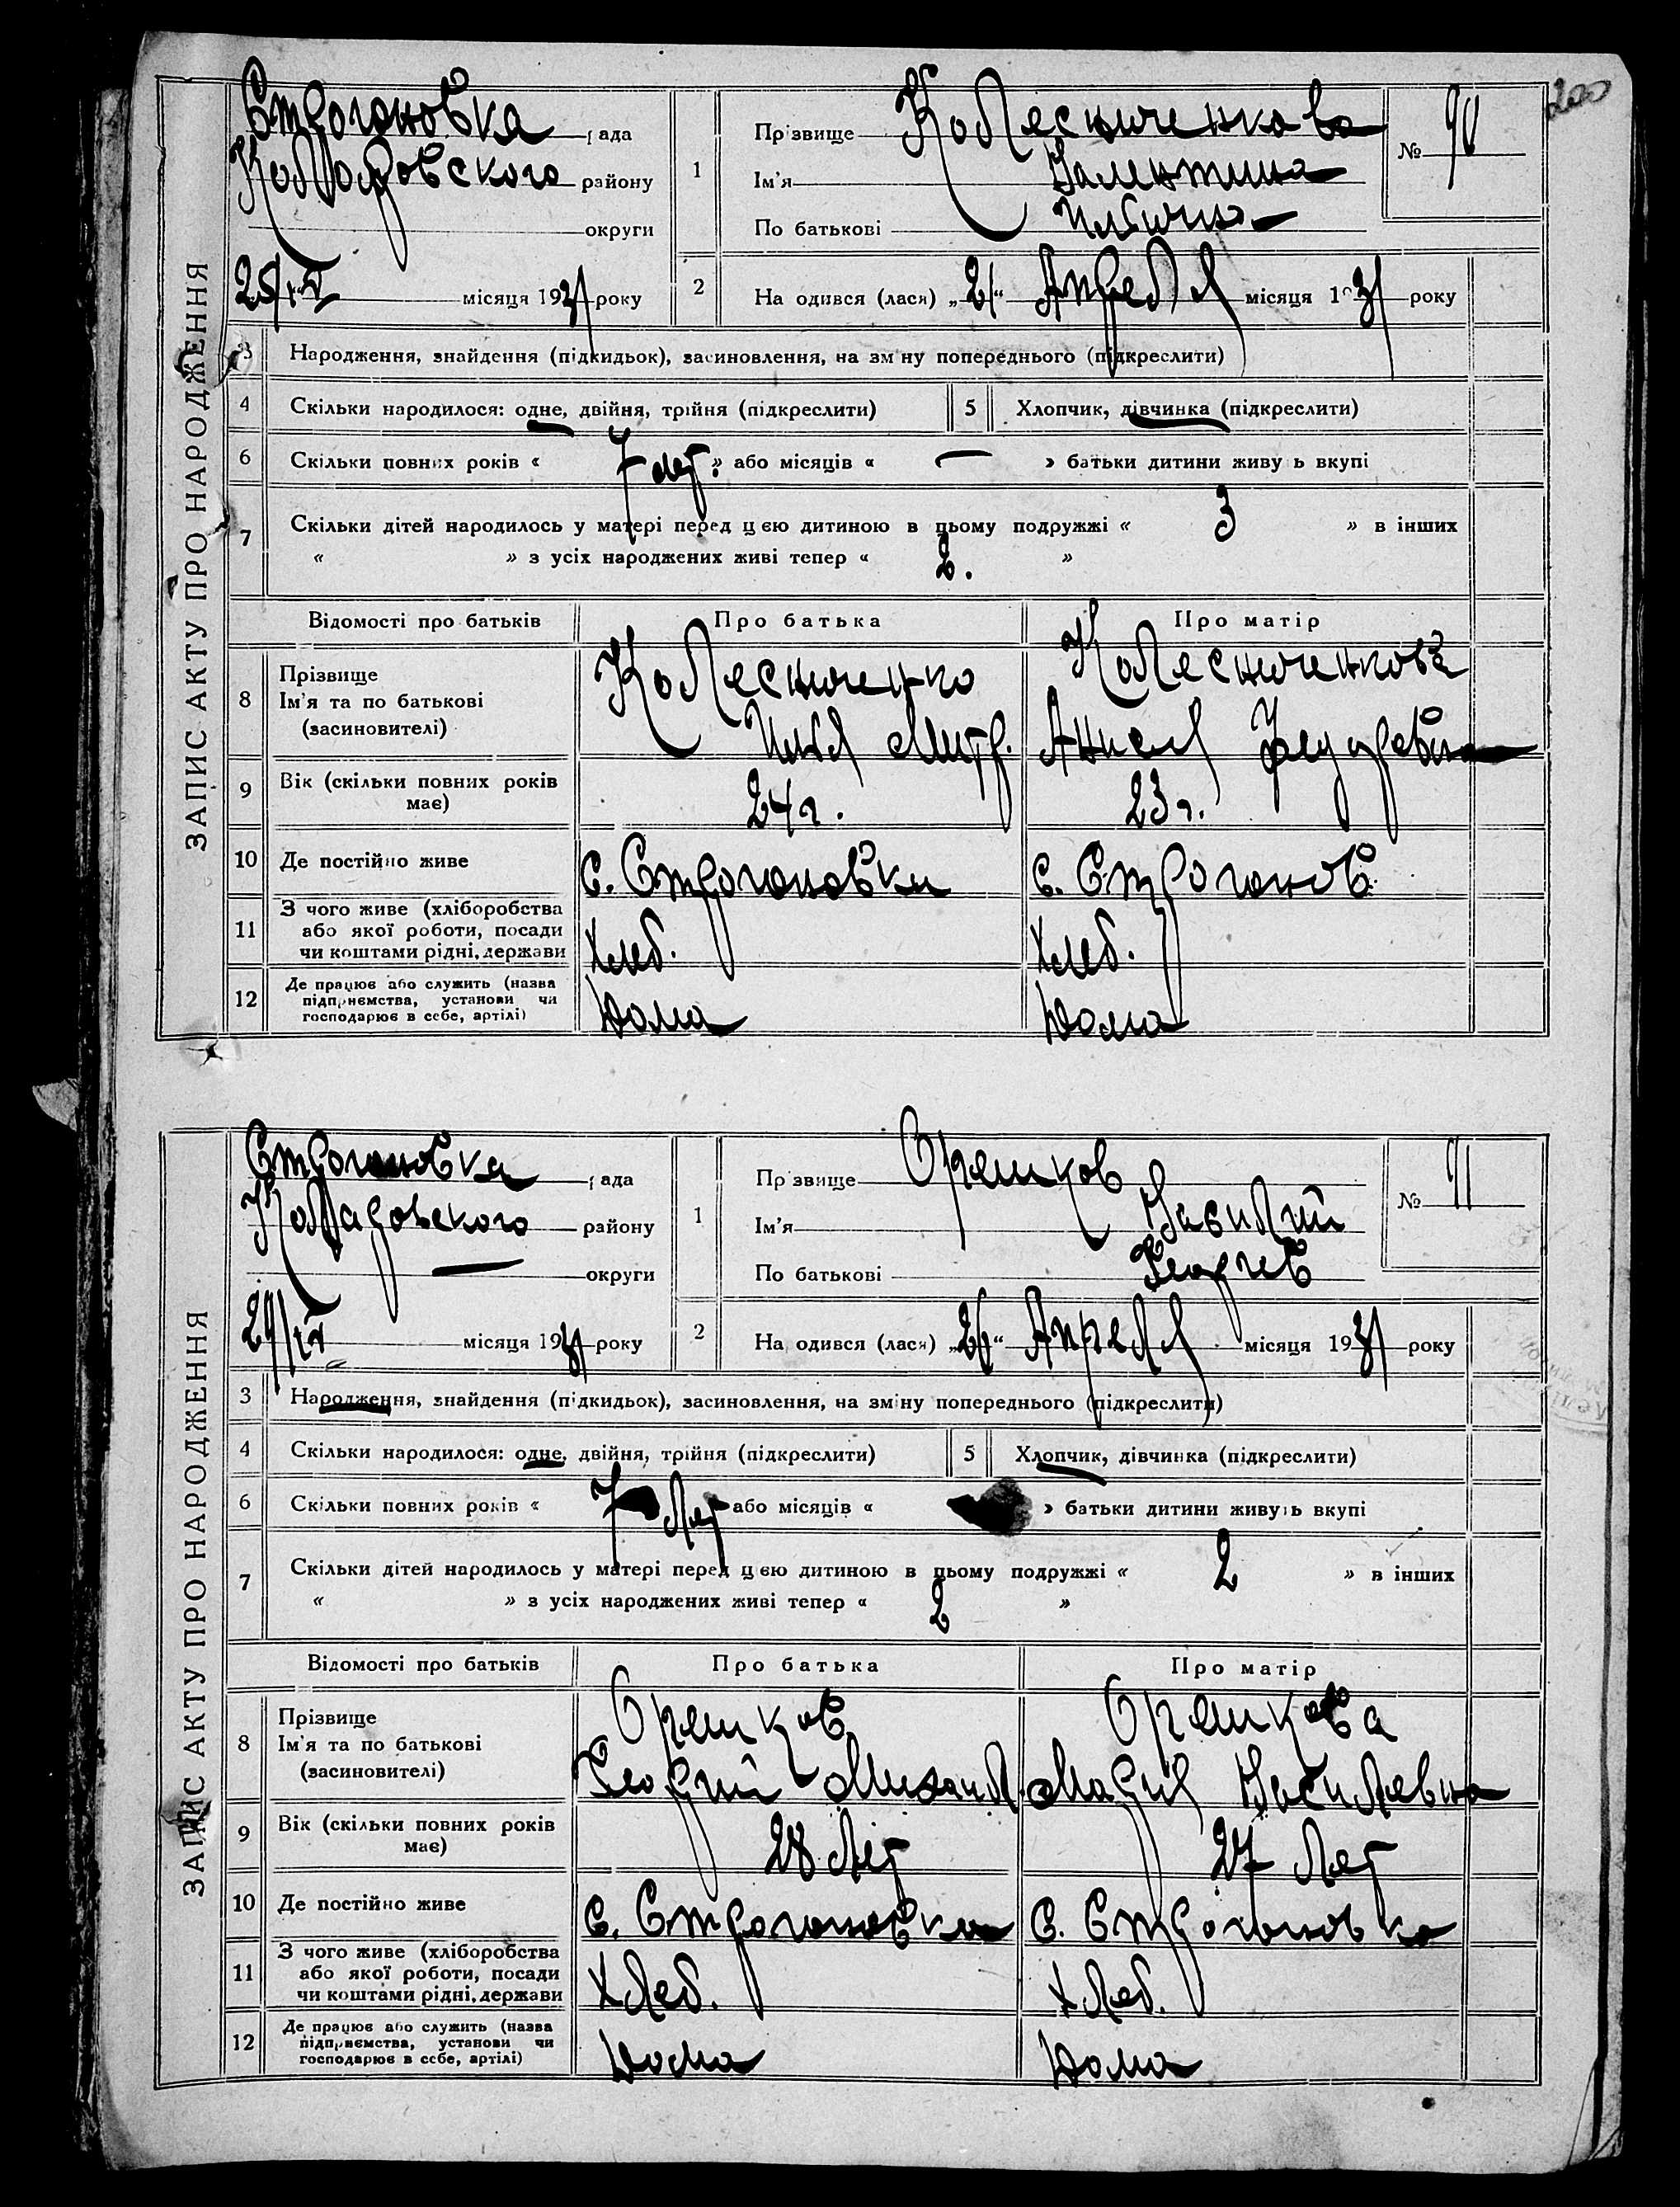 200
ЗАПИС АКТУ ПРО НАРОДЖЕННЯ
Строгоновка рада
Коларовского району
округи
25/IV місяця 1931 року
1
Прізвище Колесниченкова
Ім'я Валентина
По батькові Ильинич
№ 90
2 Народився (лася) „21“ Апреля місяця 1931 року
3 Народження, знайдення (підкидьок), засиновлення, на зміну попереднього (підкреслити)
4 Скільки народилося: одне, двійня, трійня (підкреслити) 5 Хлопчик, дівчинка (підкреслити)
6 Скільки повних років « 7 лет » або місяців « — » батьки дитини живуть вкупі
7 Скільки дітей народилось у матері перед цією дитиною в цьому подружжі « 3 » в інших
« » з усіх народжених живі тепер « 2. »
Відомості про батьків Про батька Про матір
8 Прізвище Ім'я та по батькові (засиновителі)
Колесниченко Колесниченкова
Илья Митр. Анисья
9 Вік (скільки повних років має) 24 г. 23 г.
10 Де постійно живе с. Строгоновки с. Строгонов.
11 З чого живе (хліборобства або якої роботи, посади чи коштами рідні, держави Хлеб. Хлеб.
12 Де працює або служить (назва підприємства, установи чи господарює в себе, артілі) Дома Дома
ЗАПИС АКТУ ПРО НАРОДЖЕННЯ
Строгоновка рада
Коларовского району
— округи
29/IV місяця 1931 року
1
Прізвище Орешков
Ім'я Василий
По батькові Георгиев
№ 91
2 Народився (лася) „26“ Апреля місяця 1931 року
3 Народження, знайдення (підкидьок), засиновлення, на зміну попереднього (підкреслити)
4 Скільки народилося: одне, двійня, трійня (підкреслити) 5 Хлопчик, дівчинка (підкреслити)
6 Скільки повних років « 7 лет або місяців « » батьки дитини живуть вкупі
7 Скільки дітей народилось у матері перед цією дитиною в цьому подружжі « 2 » в інших
« » з усіх народжених живі тепер « 2 »
Відомості про батьків Про батька Про матір
8 Прізвище Ім'я та по батькові (засиновителі)
Орешков Орешкова
Георгий Михаил. Мария Василевна
9 Вік (скільки повних років має) 28 лет 27 лет
10 Де постійно живе с. Строгоновка с. Строгоновка
11 З чого живе (хліборобства або якої роботи, посади чи коштами рідні, держави Хлеб. Хлеб.
12 Де працює або служить (назва підприємства, установи чи господарює в себе, артілі) Дома Дома